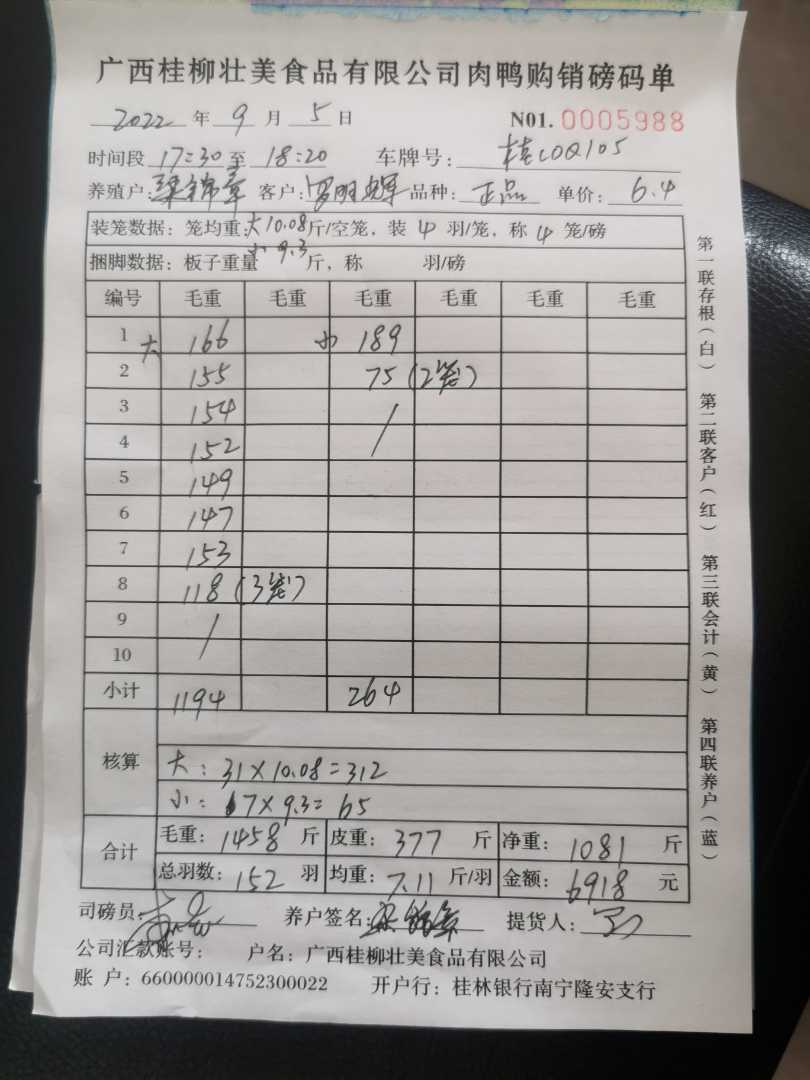 广西桂柳壮美食品有限公司肉鸭购销磅码单
2022 年 9 月 5 日 N01. 0005988
时间段 17:30 至 18:20 车牌号: 桂C0Q105
养殖户: 梁锦 客户: 罗 品种: 正品 单价: 6.4
装笼数据: 笼均重: 大10.08 斤/空笼, 装 4 羽/笼, 称 4 笼/磅
小 9.3
捆脚数据: 板子重量 斤, 称 羽/磅
编号 毛重 毛重 毛重 毛重 毛重 毛重
1 大 166 小 189
2 155 75 (2笼)
3 154 /
4 152
5 149
6 147
7 153
8 118 (3笼)
9 /
10
小计 1194 264
核算
大: 31×10.08=312
小: 7×9.3=65
合计 毛重: 1458 斤 皮重: 377 斤 净重: 1081 斤
总羽数: 152 羽 均重: 7.11 斤/羽 金额: 6918 元
司磅员: 养户签名: 梁锦 提货人:
公司汇款账号: 户名: 广西桂柳壮美食品有限公司
账 户: 660000014752300022 开户行: 桂林银行南宁隆安支行
第一联存根(白) 第二联客户(红) 第三联会计(黄) 第四联养户(蓝)